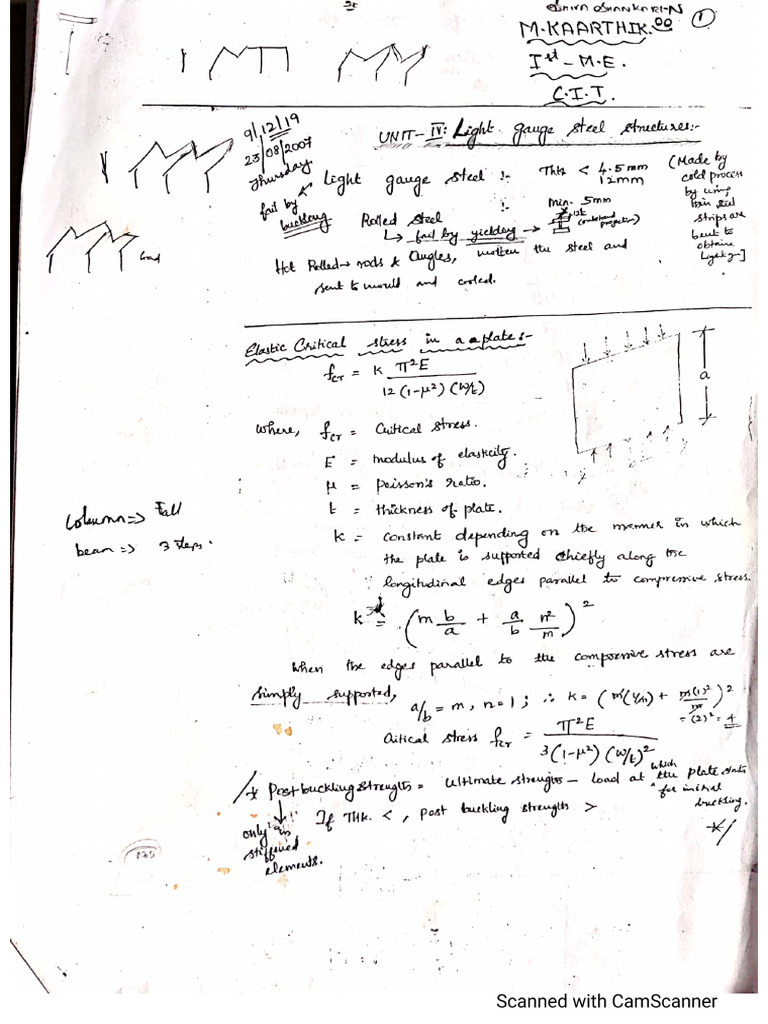 M.KAARTHIK. 00 1
Ist - M.E.
C.I.T.
9/12/19
23/08/2007
Thursday.
UNIT-IV: Light gauge steel structures:-
Light gauge steel :- Thk < 4.5mm
12mm
(Made by
cold process
by using
thin steel
strips are
bent to
obtain
fail by
buckling
Rolled steel :- min. 5mm
↳ fail by yielding →
Hot Rolled → rods & Angles, molten the steel and
sent to mould and cooled.
Elastic Critical stress in a plate:-
fcr = k π²E / 12(1-μ²)(w/t)
a
where, fcr = Critical stress.
E = modulus of elasticity.
μ = poisson's ratio.
t = thickness of plate.
k = constant depending on the manner in which
the plate is supported chiefly along the
longitudinal edges parallel to compressive stress.
column => Fall
beam => 3 steps.
k = (m b/a + a/b n²/m)²
When the edges parallel to the compressive stress are
simply supported, a/b = m, n=1; ∴ k = (m(1/m) + m(1)²/m)²
= (2)² = 4
Critical stress fcr = π²E / 3(1-μ²)(w/t)²
/* Post buckling strength = ultimate strength – load at which the plate starts
for initial
buckling.
If Thk. <, post buckling strength >
*/
only in
stiffened
elements.
Scanned with CamScanner